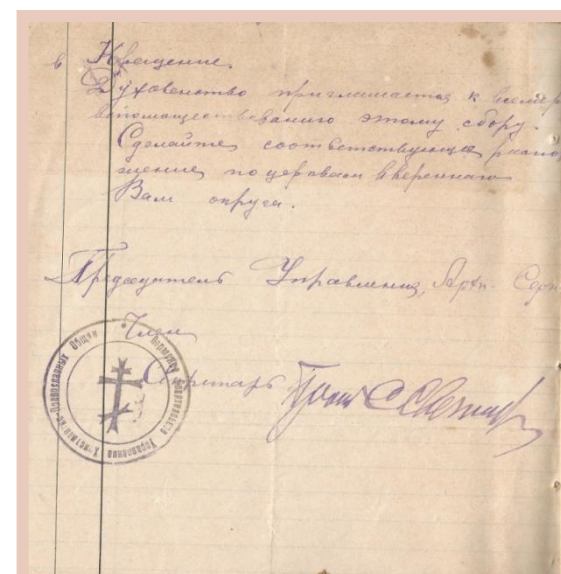 в Крещение.
Духовенство приглашается к всемер
вспомоществованию этому сбору.
Сделайте соответствующее распо
жение по церквам вверенного
Вам округа.
Председатель Управления, Архи.
Член
Секретарь
Управление Христианско-Православных Общин